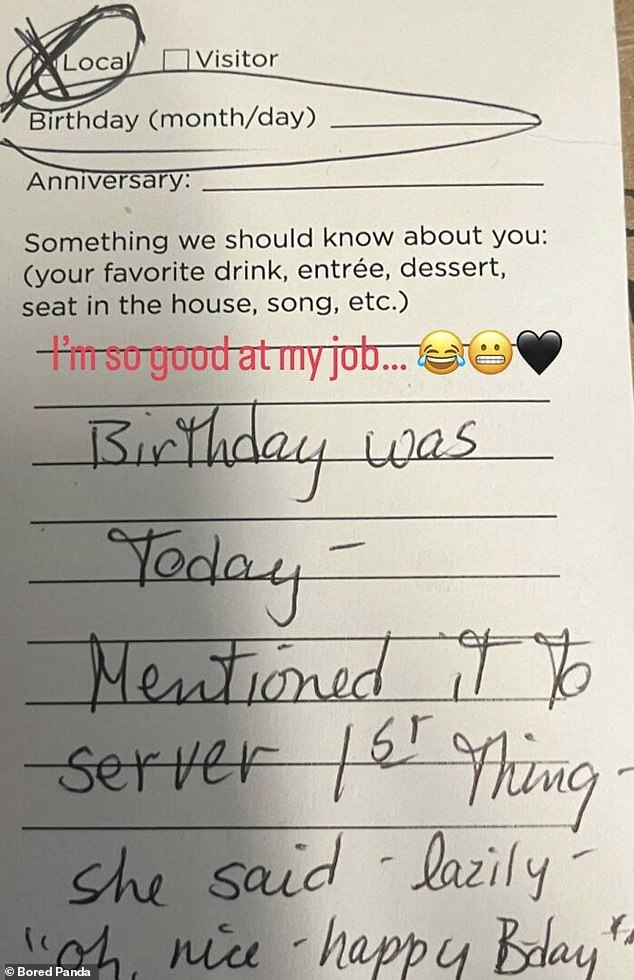 Local Visitor
Birthday (month/day)
Anniversary:
Something we should know about you:
(your favorite drink, entrée, dessert,
seat in the house, song, etc.)
I'm so good at my job... 😂😬🖤
Birthday was
Today -
Mentioned it to
server 1st Thing -
she said - lazily -
"oh, nice - happy Bday"
© Bored Panda